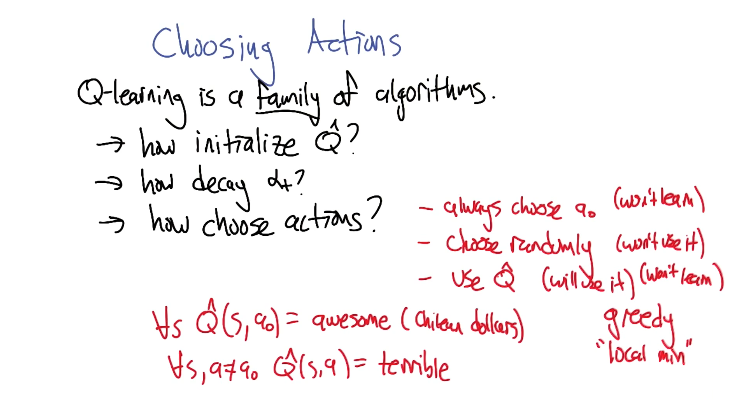 Choosing Actions
Q-learning is a family of algorithms.
→ how initialize Q̂?
→ how decay αt?
→ how choose actions?
- always choose a₀ (won't learn)
- choose randomly (won't use it)
- use Q̂ (will use it) (won't learn)
greedy
"local min"
∀s Q̂(s,a₀) = awesome (Chilean dollars)
∀s,a≠a₀ Q̂(s,a) = terrible